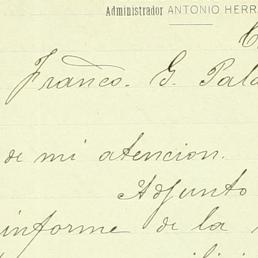 Administrador ANTONIO HERR
Franco. G. Pala
de mi atencion.
Adjunto
informe de la